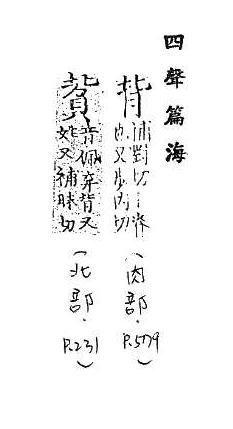 四聲篇海
背 補對切脊
也又步内切
(肉部.P.579)
音佩弃背又
姓又補昧切
(北部.P.231)